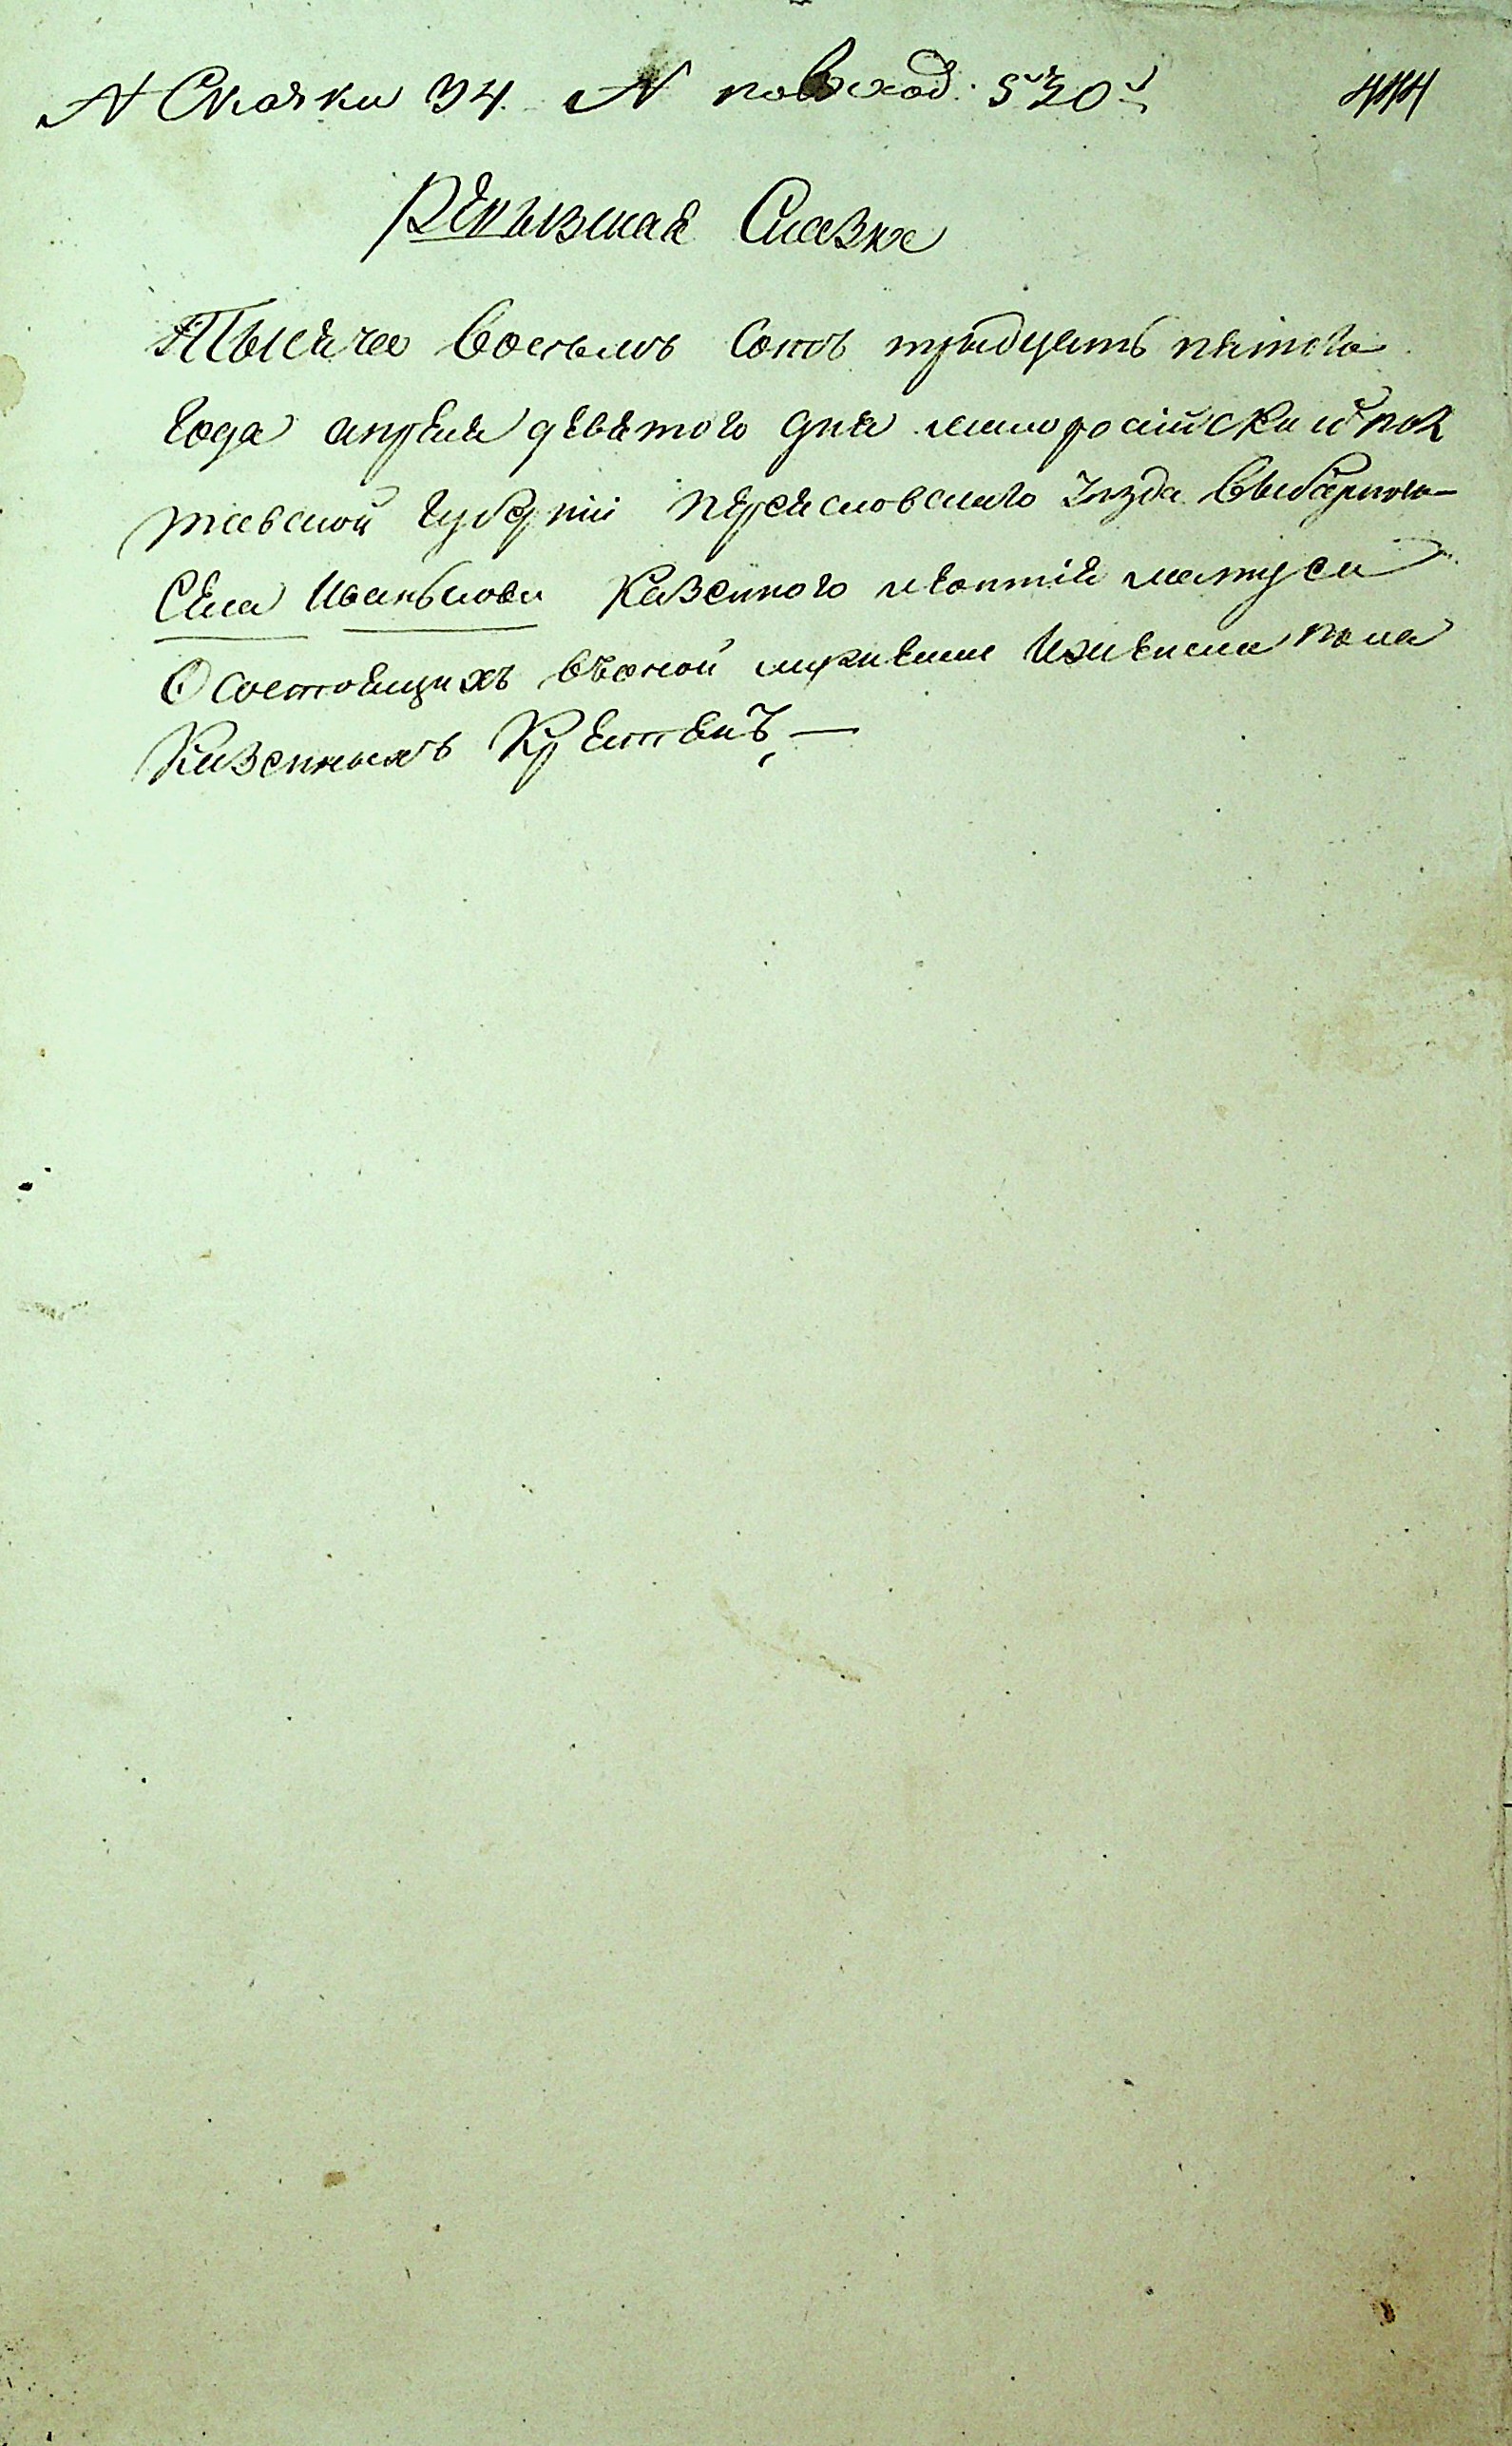 № Сказки 34. № повход: 530й 444
Ревызкая Сказка
Тысяча восемъ сотъ трыдцять пятого
года апреля девятого дня малоросийской пол
тавской губерніи переясловского уезда выборного
Села Иванькова Казенного
О состоящихъ въоной мужеска Иженска пола
Казенныхъ Крестянъ, —